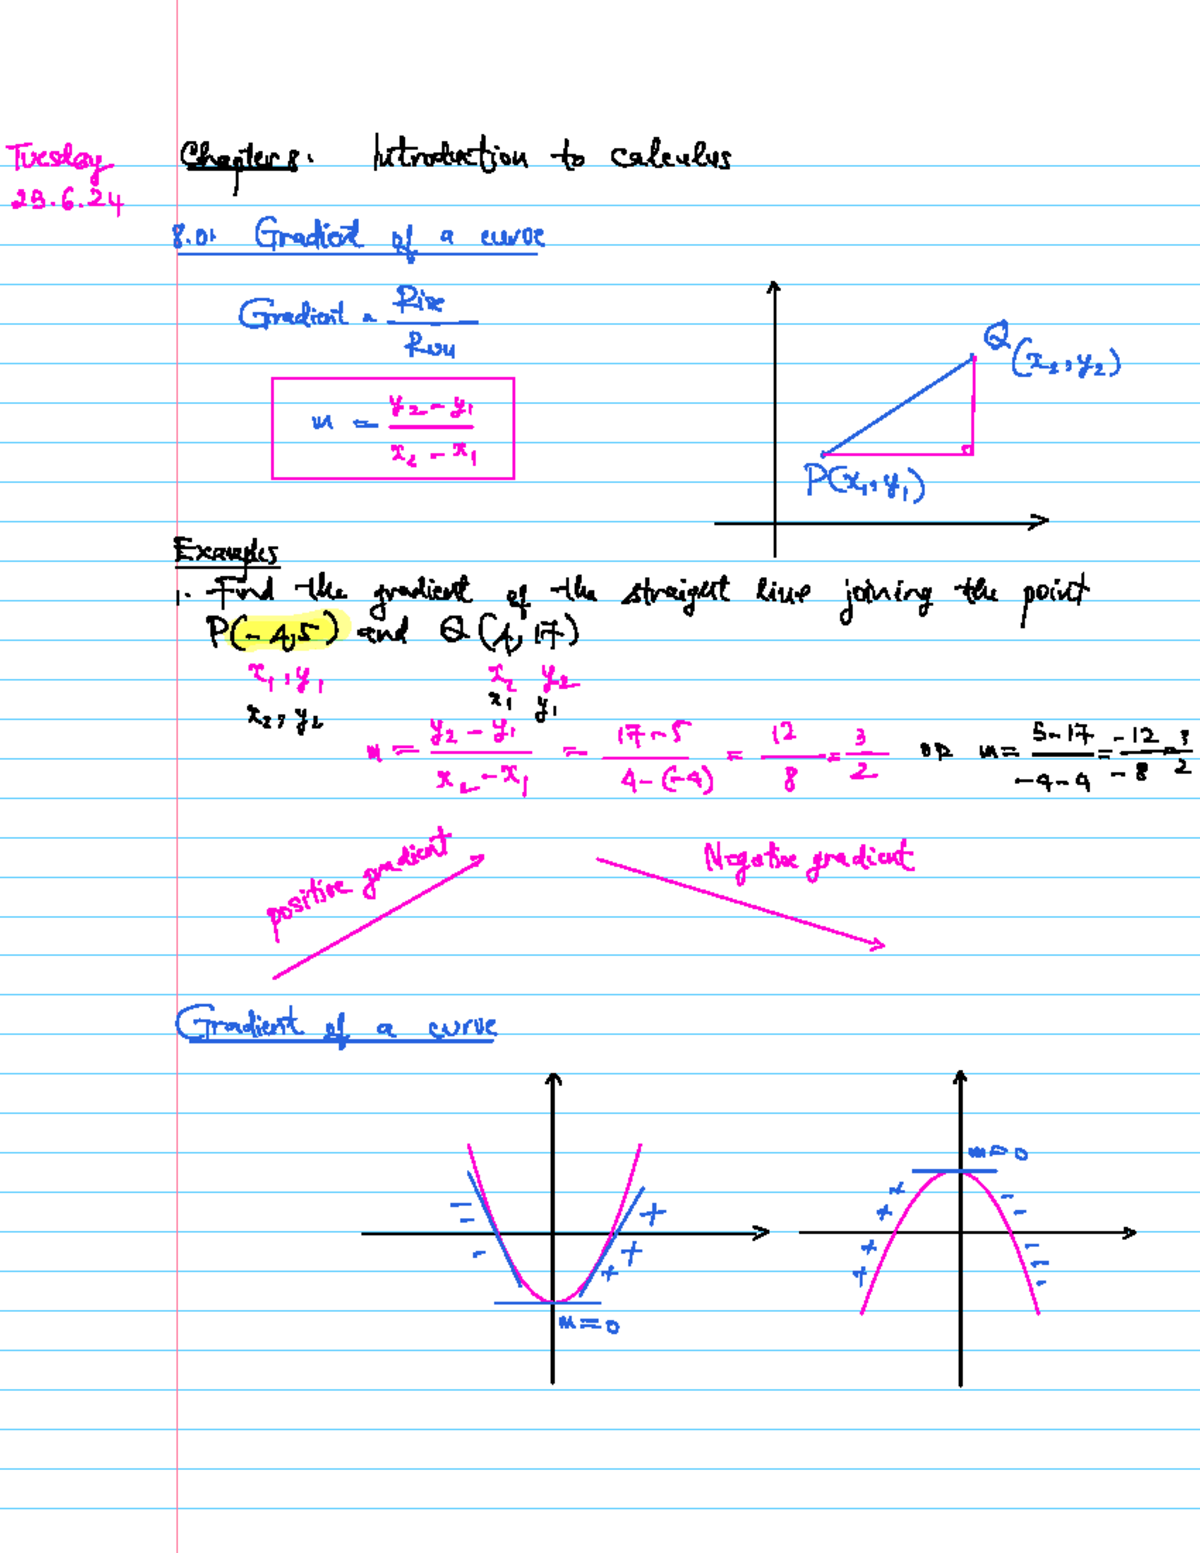 Tuesday
Chapter 8. Introduction to calculus
8.01 Gradient of a curve
Gradient = Rise
Run
Q(x₂, y₂)
m = y₂ - y₁
x₂ - x₁
P(x₁, y₁)
Examples
1. Find the gradient of the straight line joining the point
P(-4,5) and Q(4, 17)
x₁, y₁ x₂ y₂
x₂, y₂ x₁ y₁
m = y₂ - y₁ / x₂ - x₁ = 17 - 5 / 4 - (-4) = 12 / 8 = 3 / 2 or m = 5 - 17 / -4 - 4 = -12 / -8 = 3 / 2
positive gradient Negative gradient
Gradient of a curve
m = 0
+ + + + - - - - -
- - - + + +
m = 0